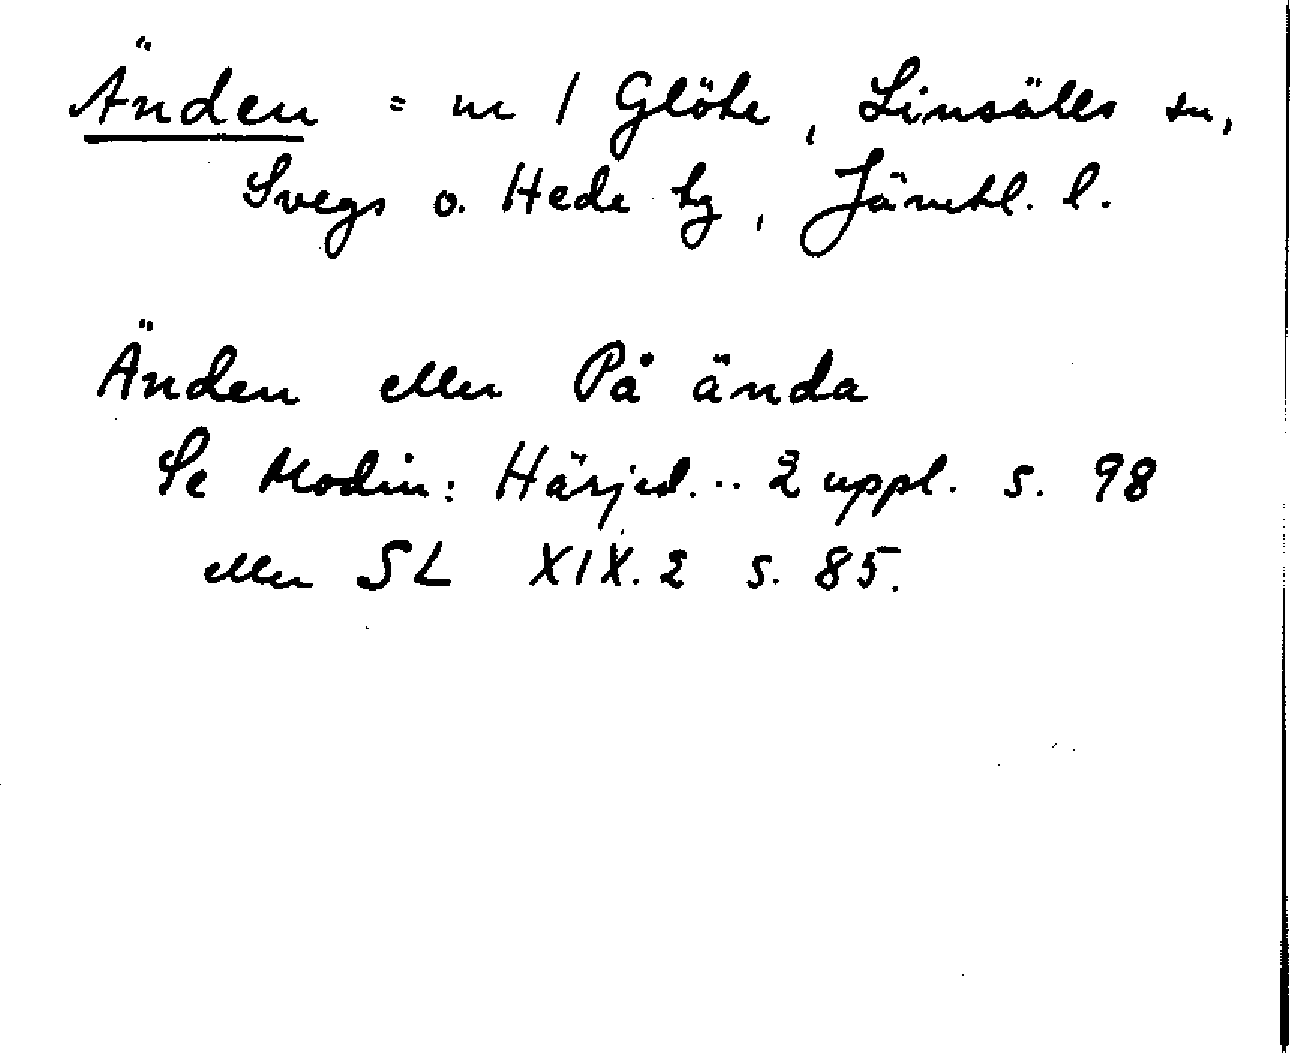 Änden = nr 1 Glöte, Linsälls sn,
Svegs o. Hede tg, Jämtl. l.
Änden eller På ända
Se Modin: Härjed... 2 uppl. s. 98
eller SL XIX.2 s. 85.